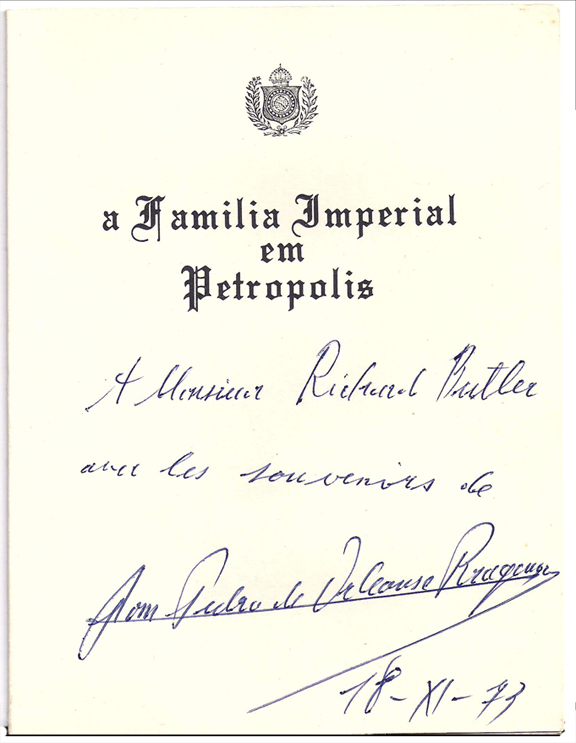 a Familia Imperial
em
Petropolis
A Monsieur Richard Butler
avec les souvenirs de
Dom Pedro de Orleans e Bragança
18-XI-73